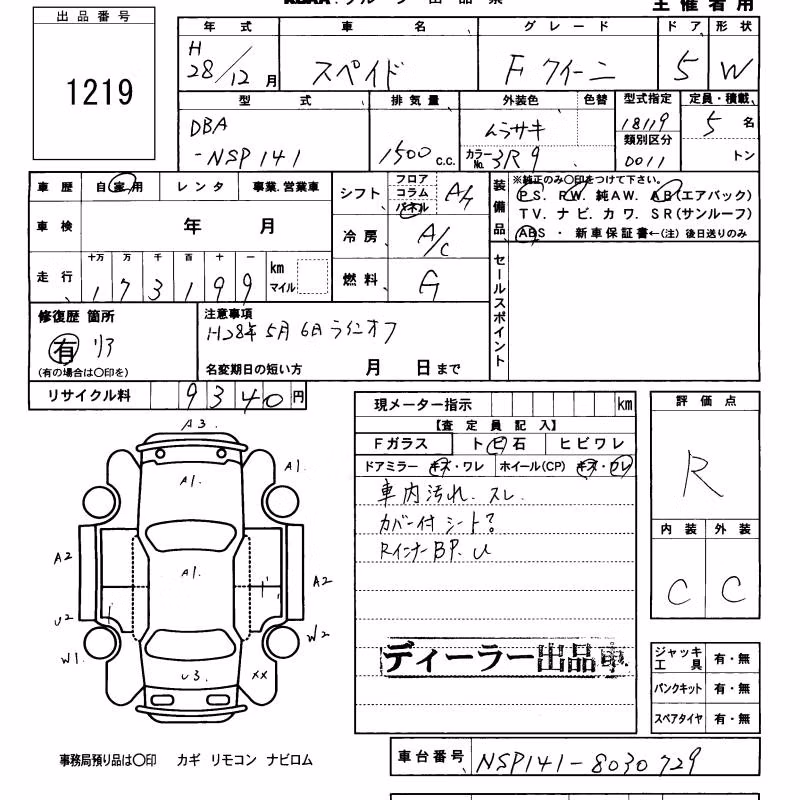 主催者用
出品番号
1219
年式 車名 グレード ドア 形状
H
28/12月 スペイド F クイーン 5 W
型式 排気量 外装色 色替 型式指定 定員・積載
DBA
-NSP141 1500 c.c. ムラサキ
カラーNo. 3R9
18119
類別区分
0011
5名
トン
車歴 自家用 レンタ 事業.営業車
車検 年 月
走行 十万 万 千 百 十 一
173199 km マイル
シフト フロア コラム パネル A/T
冷房 A/C
燃料 G
装備品
※純正のみ〇印をつけて下さい。
PS. RW. 純AW. AB(エアバック)
TV. ナビ. カワ. SR(サンルーフ)
ABS ・ 新車保証書←(注)後日送りのみ
セールスポイント
修復歴 箇所
有 リア
(有の場合は〇印を)
注意事項
H28年5月6日ラインオフ
名変期日の短い方 月 日まで
リサイクル料 9340円
現メーター指示 km
【査定員記入】
Fガラス トビ石 ヒビワレ
ドアミラー キズ・ワレ ホイール(CP) キズ・ワレ
車内汚れ. スレ.
カバー付シート?
Rインナー BP. U
ディーラー出品車
評価点
R
内装 外装
C C
A3
A1.
A1.
A1.
A1.
A2
A2
U2
W2
W1
U3.
XX
ジャッキ工具 有・無
パンクキット 有・無
スペアタイヤ 有・無
事務局預り品は〇印 カギ リモコン ナビロム
車台番号 NSP141-8030729